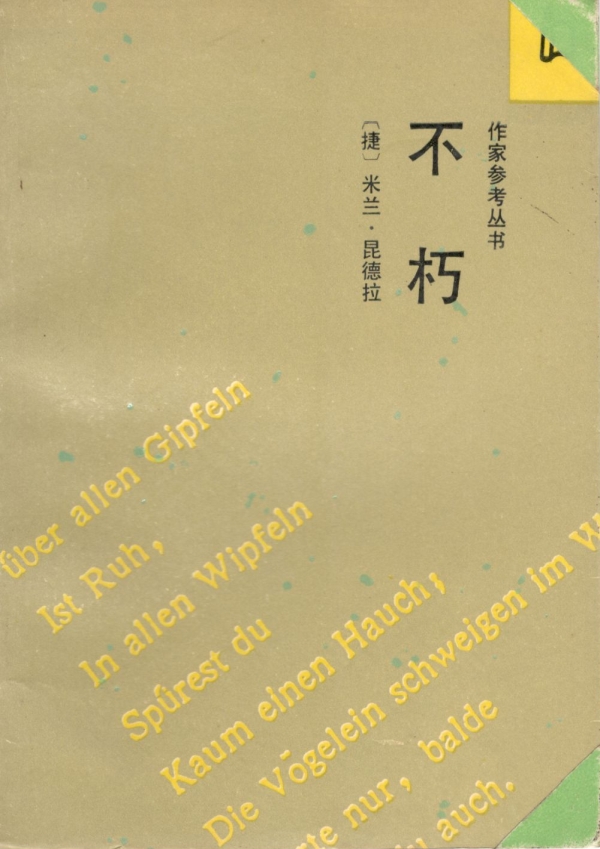 作家参考丛书
不朽
〔捷〕米兰·昆德拉
über allen Gipfeln
Ist Ruh,
In allen Wipfeln
Spûrest du
Kaum einen Hauch;
Die Võgelein schweigen im
nur, balde
auch.